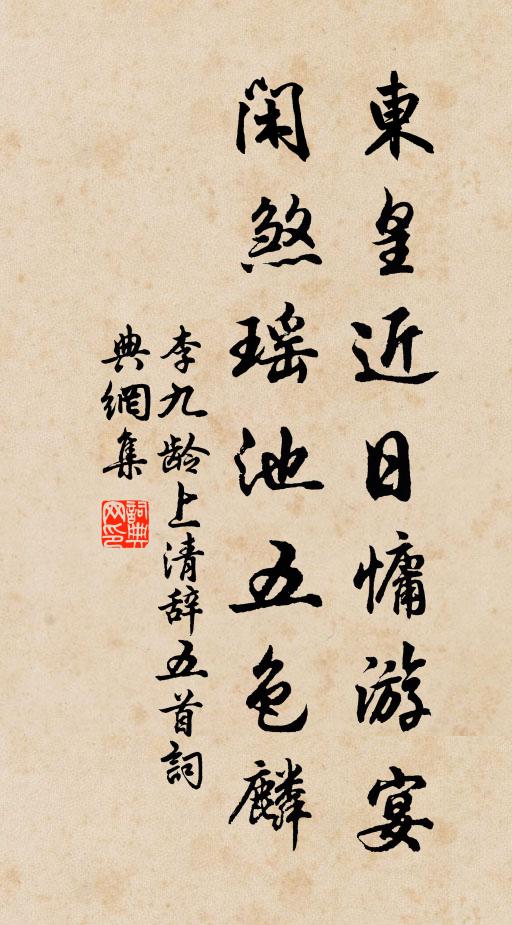 東皇近日慵游宴
閑煞瑶池五色麟
李九龄上清辞五首詞
典網集
詞典網印